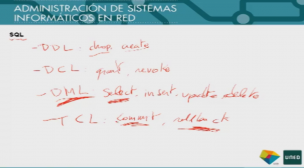 ADMINISTRACIÓN DE SISTEMAS
INFORMÁTICOS EN RED
SQL
- DDL: create
- DCL: grant, revoke
- DML: Select, insert, update delete
- TCL: commit, rollback